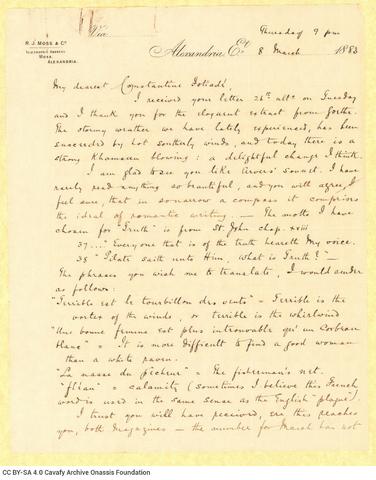 Thursday 9 pm
R. J. MOSS & Co.
TELEGRAPHIC ADDRESS
MOSS,
ALEXANDRIA.
Via
Alexandria, Et. 8 March 1883
My dearest Constantine Fotiadé,
I received your letter 26th ulto on Tuesday
and I thank you for the eloquent extract from Goethe.
The stormy weather we have lately experienced, has been
succeeded by hot southerly winds, and today there is a
strong Khamseen blowing: a delightful change I think.
I am glad to see you like Arvers' sonnet. I have
rarely read anything so beautiful, and you will agree, I
feel sure, that in so narrow a compass it comprises
the ideal of romantic writing. — The motto I have
chosen for "Truth" is from St. John chap. xviii
37 ..." Everyone that is of the truth heareth My voice.
38 " Pilate saith unto Him, what is Truth?" —
The phrases you wish me to translate, I would render
as follows:
"Terrible est le tourbillon des vents" = Terrible is the
vortex of the winds, or terrible is the whirlwind
"Une bonne femme est plus introuvable qu'un Corbeau
blanc" = It is more difficult to find a good woman
than a white raven.
"La nasse du pêcheur" = The fisherman's net.
"fléau" = calamity (sometimes I believe this French
word is used in the same sense as the English "plague").
I trust you will have received, ere this reaches
you, both Magazines — the number for March has not
CC BY-SA 4.0 Cavafy Archive Onassis Foundation